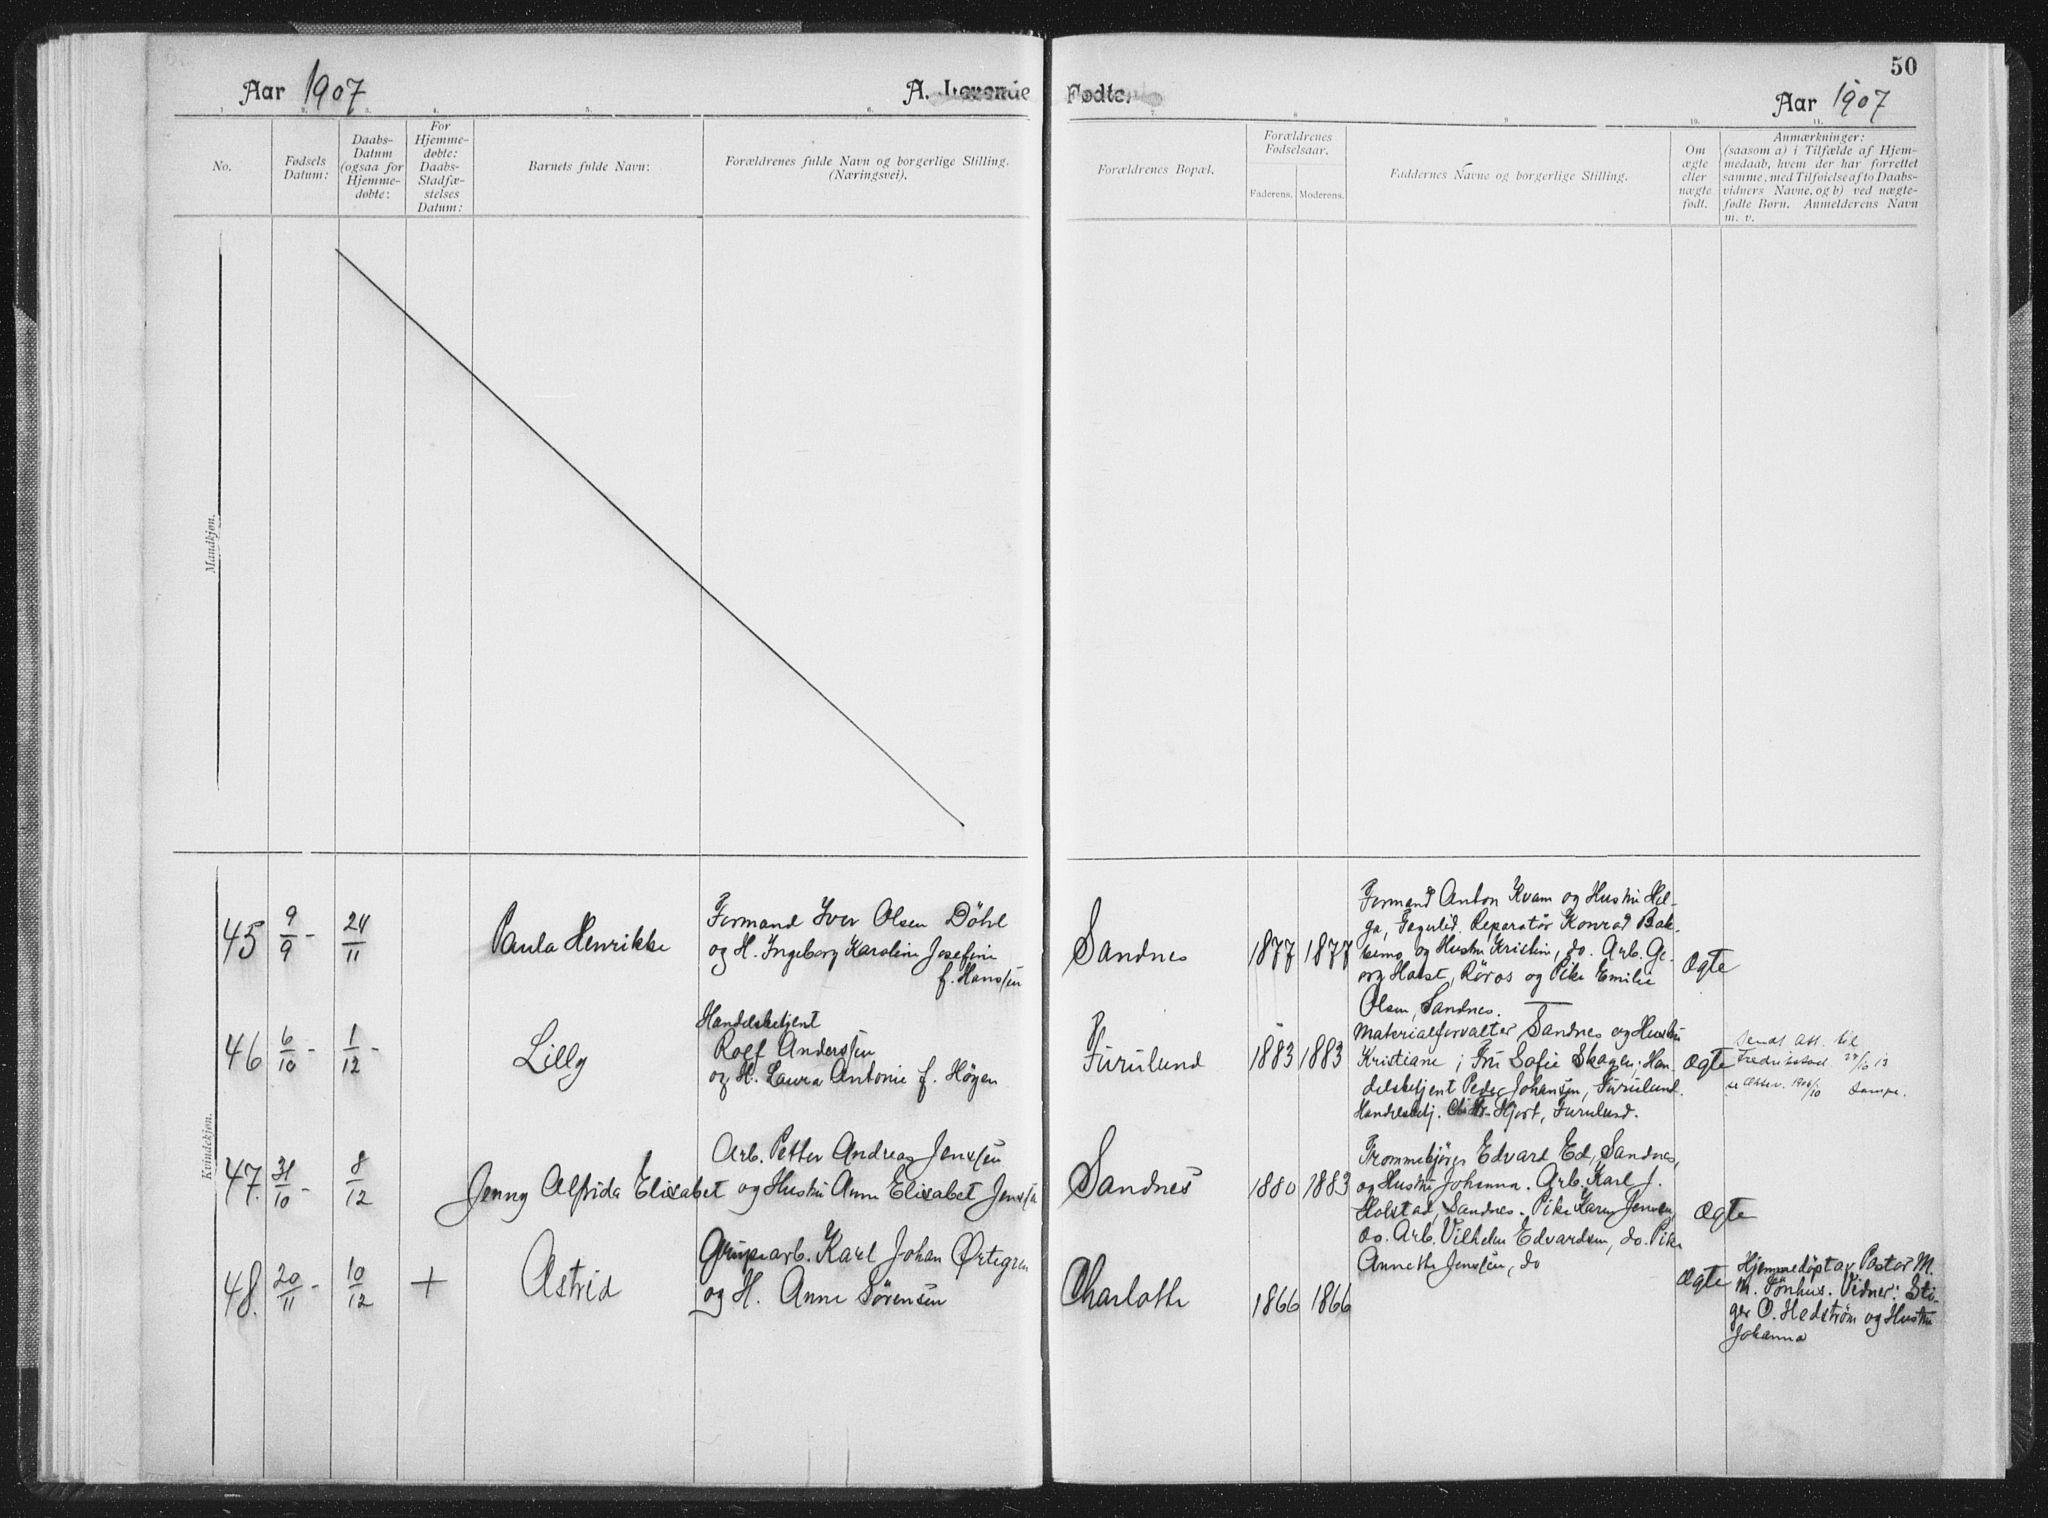 50
Aar 1907
A. Levende
Fødte.
Aar 1907
1. 2. 3. 4. 5. 6. 7. 8. 9. 10. 11.
No.
Fødsels
Datum:
Daabs-
Datum
(ogsaa for
Hjemme-
døbte:
For
Hjemme-
døbte:
Daabs-
Stadfæ-
stelses
Datum:
Barnets fulde Navn:
Forældrenes fulde Navn og borgerlige Stilling.
(Næringsvei).
Forældrenes Bopæl.
Forældrenes
Fødselsaar.
Faderens. Moderens.
Faddernes Navne og borgerlige Stilling.
Om
ægte
eller
uægte
født.
Anmærkninger:
(saasom a) i Tilfælde af Hjem-
medaab, hvem der har forrettet
samme, med Tilføielse af to Daabs-
vidners Navne, og b) ved uægte-
fødte Børn. Anmelderens Navn
m. v.
Mandkjøn.
Kvindekjøn.
45
9/9 -
24/11
Paula Henrikke
Formand Iver Olsen Döhl
og H. Ingeborg Karoline Josefine
f. Hanssen
Sandnes
1877 1877
Formand Anton Kvam og Hustru Hel-
ga, Fagerlid. Reparatör Konrad Bak-
kemo og Hustru Kristine, do. Arb. Ge-
org Holst, Röros og Pike Emilie
Olsen, Sandnes.
Ægte
46
6/10 -
1/12 -
Lilly
Handelsbetjent
Rolf Anderssen
og H. Laura Antonie f. Høyen
Furulund
1883 1883
Materialforvalter Sandnes og Hustru
Kristiane; Fru Sofie Skagen; Han-
delsbetjent Peder Johansen, Furulund.
Handelsbetj. Chr. Hjort, Furulund.
Ægte
Sendt att. til
Fredrikstad 27/10 13
47.
31/10 -
8/12
Jenny Alfrida Elisabet
Arb. Petter Andreas Jenssen
og Hustru Anne Elisabet Jenssen
Sandnes
1880 1883
Trommekjörer Edvard Ed, Sandnes,
og Hustru Johanna. Arb. Karl J.
Holstad, Sandnes. Pike Karen Jensen,
do. Arb. Vilhelm Edvardsen, do. Pike
Annethe Jenssen, do
Ægte
48.
20/11 -
10/12
+
Astrid
Grupearb. Karl Johan Örtegren
og H. Anne Sørensen
Charlotte
1866 1866
Ægte
Hjemmedøpt av Pastor M.
M. Tönhus. Vidner: Sti-
ger O. Hedström og Hustru
Johanna